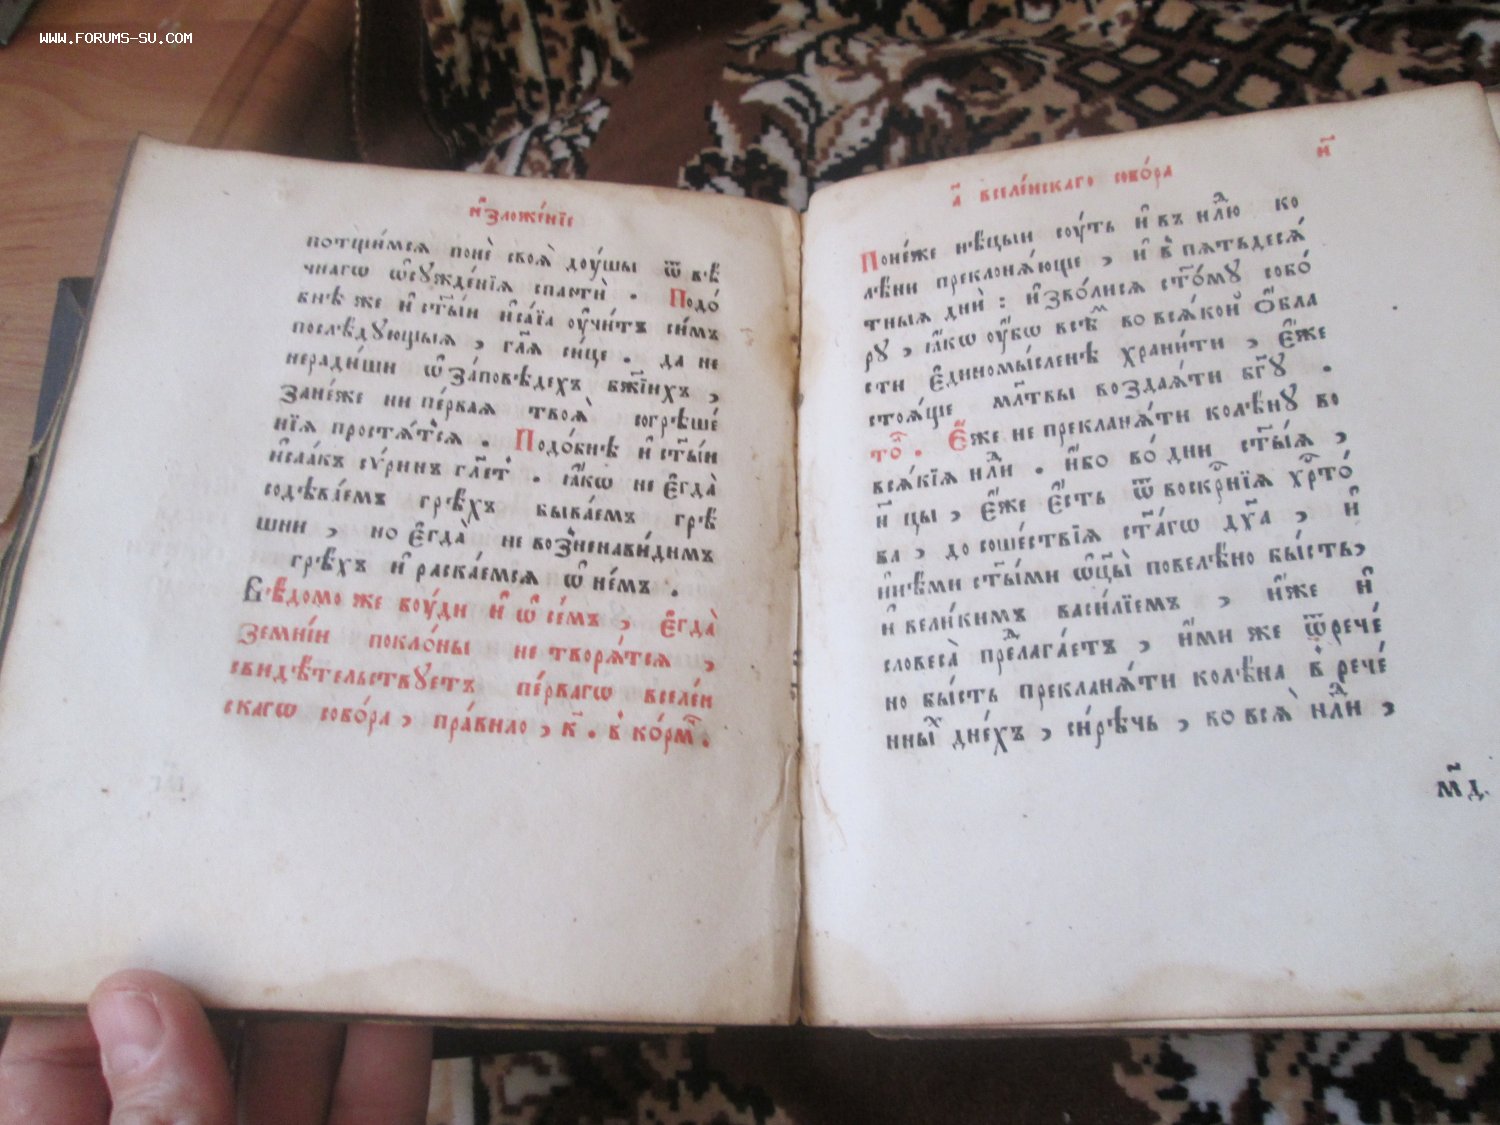 WWW.FORUMS-SU.COM
и҆зложе́нїе
потщи́мсѧ понѐ своѧ̀ дꙋ́шы ѿ вѣ́
чнагѡ ѡ҆сꙋжде́нїѧ спастѝ . Подо́
бнѣ же и҆ ст҃ы́й и҆са́їа оу҆чи́тъ си́мъ
послѣ́дꙋющыѧ , гл҃ѧ си́це . да не
неради́ши ѡ҆ за́повѣдехъ бж҃їихъ ,
зане́же ни пе́рваѧ твоѧ̀ согрѣше́
нїѧ простѧ́тсѧ . Подо́бнѣ и҆ ст҃ы́й
и҆са́къ сѵ́ринъ гл҃етъ . ꙗ҆́кѡ не є҆гда̀
содѣва́емъ грѣ́хъ быва́емъ грѣ́
шни , но є҆гда̀ не возненави́димъ
грѣ́хъ и҆ раска́емсѧ ѡ҆ не́мъ .
Вѣ́домо же бꙋ́ди и҆ ѡ҆ се́мъ , є҆гда̀
земні́и покло́ны не творѧ́тсѧ ,
свидѣ́тельствꙋетъ пе́рвагѡ вселе́н
скагѡ собо́ра , пра́вило , к҃ . в̾ ко́рм .
а҃ вселе́нскаго собо́ра
и҃
Поне́же нѣ́цыи сꙋ́ть и҆ въ нлⷣю ко
лѣ́ни преклонѧ́юще , и҆ в̾ пѧтьдесѧ́
тныѧ днѝ : и҆зво́лисѧ ст҃о́мꙋ собо́
рꙋ , ꙗ҆́кѡ оу҆́бѡ всѣ̑м во всѧ́кой ѻ҆́бла
сти є҆диномы́сленѣ храни́ти , є҆́же
стоѧ́ще мл҃твы воздаѧ́ти бг҃ꙋ .
то̑ . Є҆́же не прекланѧ́ти колѣ́нꙋ во
всѧ́кїѧ нлⷣи . и҆́бо во́ дни ст҃ы́ѧ ,
н҃ цы , є҆́же є҆́сть ѿ воскрⷭ҇нїѧ хрⷭ҇то́
ва , до соше́ствїѧ ст҃а́гѡ дх҃а , и҆
и҆нѣ́ми ст҃ы́ми ѻ҆ц҃ы̀ повелѣ́но бы́сть,
и҆ вели́кимъ васи́лїемъ , и҆́же и҆
словеса̀ прⷣелага́етъ , и҆́ми же ѿрече́
но бы́сть прекланѧ́ти колѣ́на в̾ рече́
нныⷯ дне́хъ , си́рѣчь , во всѧ̀ нлⷣи ,
мд҃